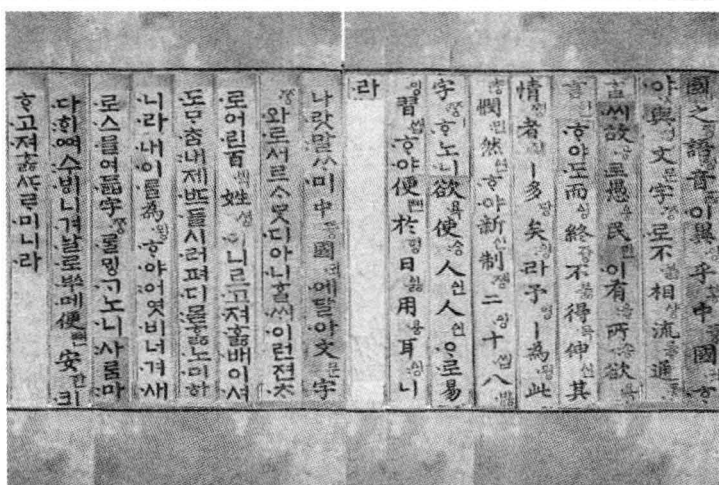 國之語音이異乎中國ᄒᆞ
야與文字로不相流通
ᄒᆞᆯᄊᆡ故로愚民이有所欲
言ᄒᆞ야도而終不得伸其
情者ㅣ多矣라予ㅣ為此
憫然ᄒᆞ야新制二十八
字ᄒᆞ노니欲使人人ᄋᆞ로易
習ᄒᆞ야便於日用耳니
라
나랏말ᄊᆞ미中國에달아文字
와로서르ᄉᆞᄆᆞᆺ디아니ᄒᆞᆯᄊᆡ이런젼ᄎᆞ
로어린百姓이니르고져호ᇙ배이셔
도ᄆᆞᄎᆞᆷ내제ᄠᅳ들시러펴디몯ᄒᆞᇙ노미하
니라내이ᄅᆞᆯ為ᄒᆞ야어엿비너겨새
로스믈여듧字ᄅᆞᆯᄆᆡᇰᄀᆞ노니사ᄅᆞᆷ마
다ᄒᆡᅇᅧ수ᄫᅵ니겨날로ᄡᅮ메便安킈
ᄒᆞ고져ᄒᆞᇙᄯᆞᄅᆞ미니라